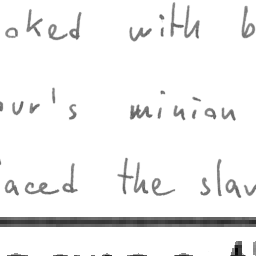 oked with b
our's minion
aced the slav